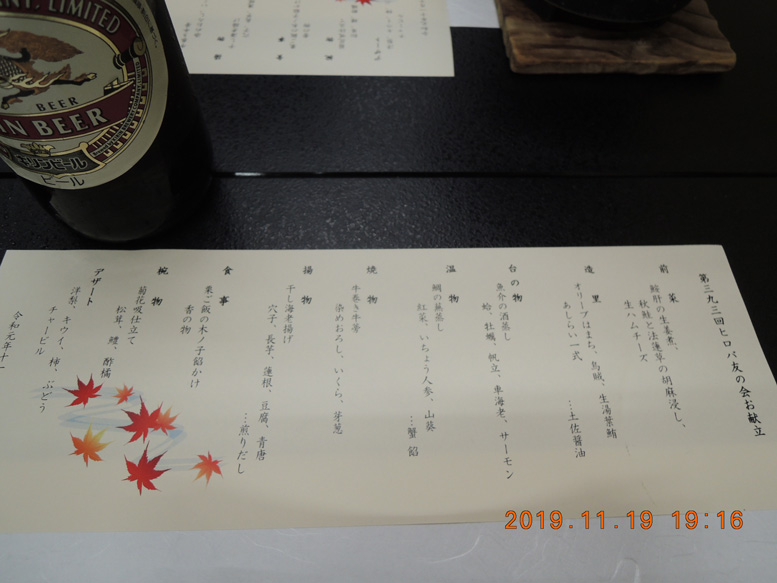 第三九三回ヒロバ友の会お献立
前菜
鮟肝の生姜煮、
秋鮭と法蓮草の胡麻浸し、
生ハムチーズ
造里
オリーブはまち、烏賊、生湯葉鮪
あしらい一式
…土佐醤油
台の物
魚介の酒蒸し
蛤、牡蠣、帆立、車海老、サーモン
温物
鯛の蕪蒸し
紅葉、いちょう人参、山葵
…蟹餡
焼物
牛巻き牛蒡
染めおろし、いくら、芽葱
揚物
干し海老揚げ
穴子、長芋、蓮根、豆腐、青唐
…煎りだし
食事
栗ご飯の木ノ子餡かけ
香の物
椀物
菊花吸仕立て
松茸、鱧、酢橘
デザート
洋梨、キウイ、柿、ぶどう
チャービル
令和元年十一
LIMITED
BEER
IN BEER
キリンビール
ビール
2019.11.19 19:16